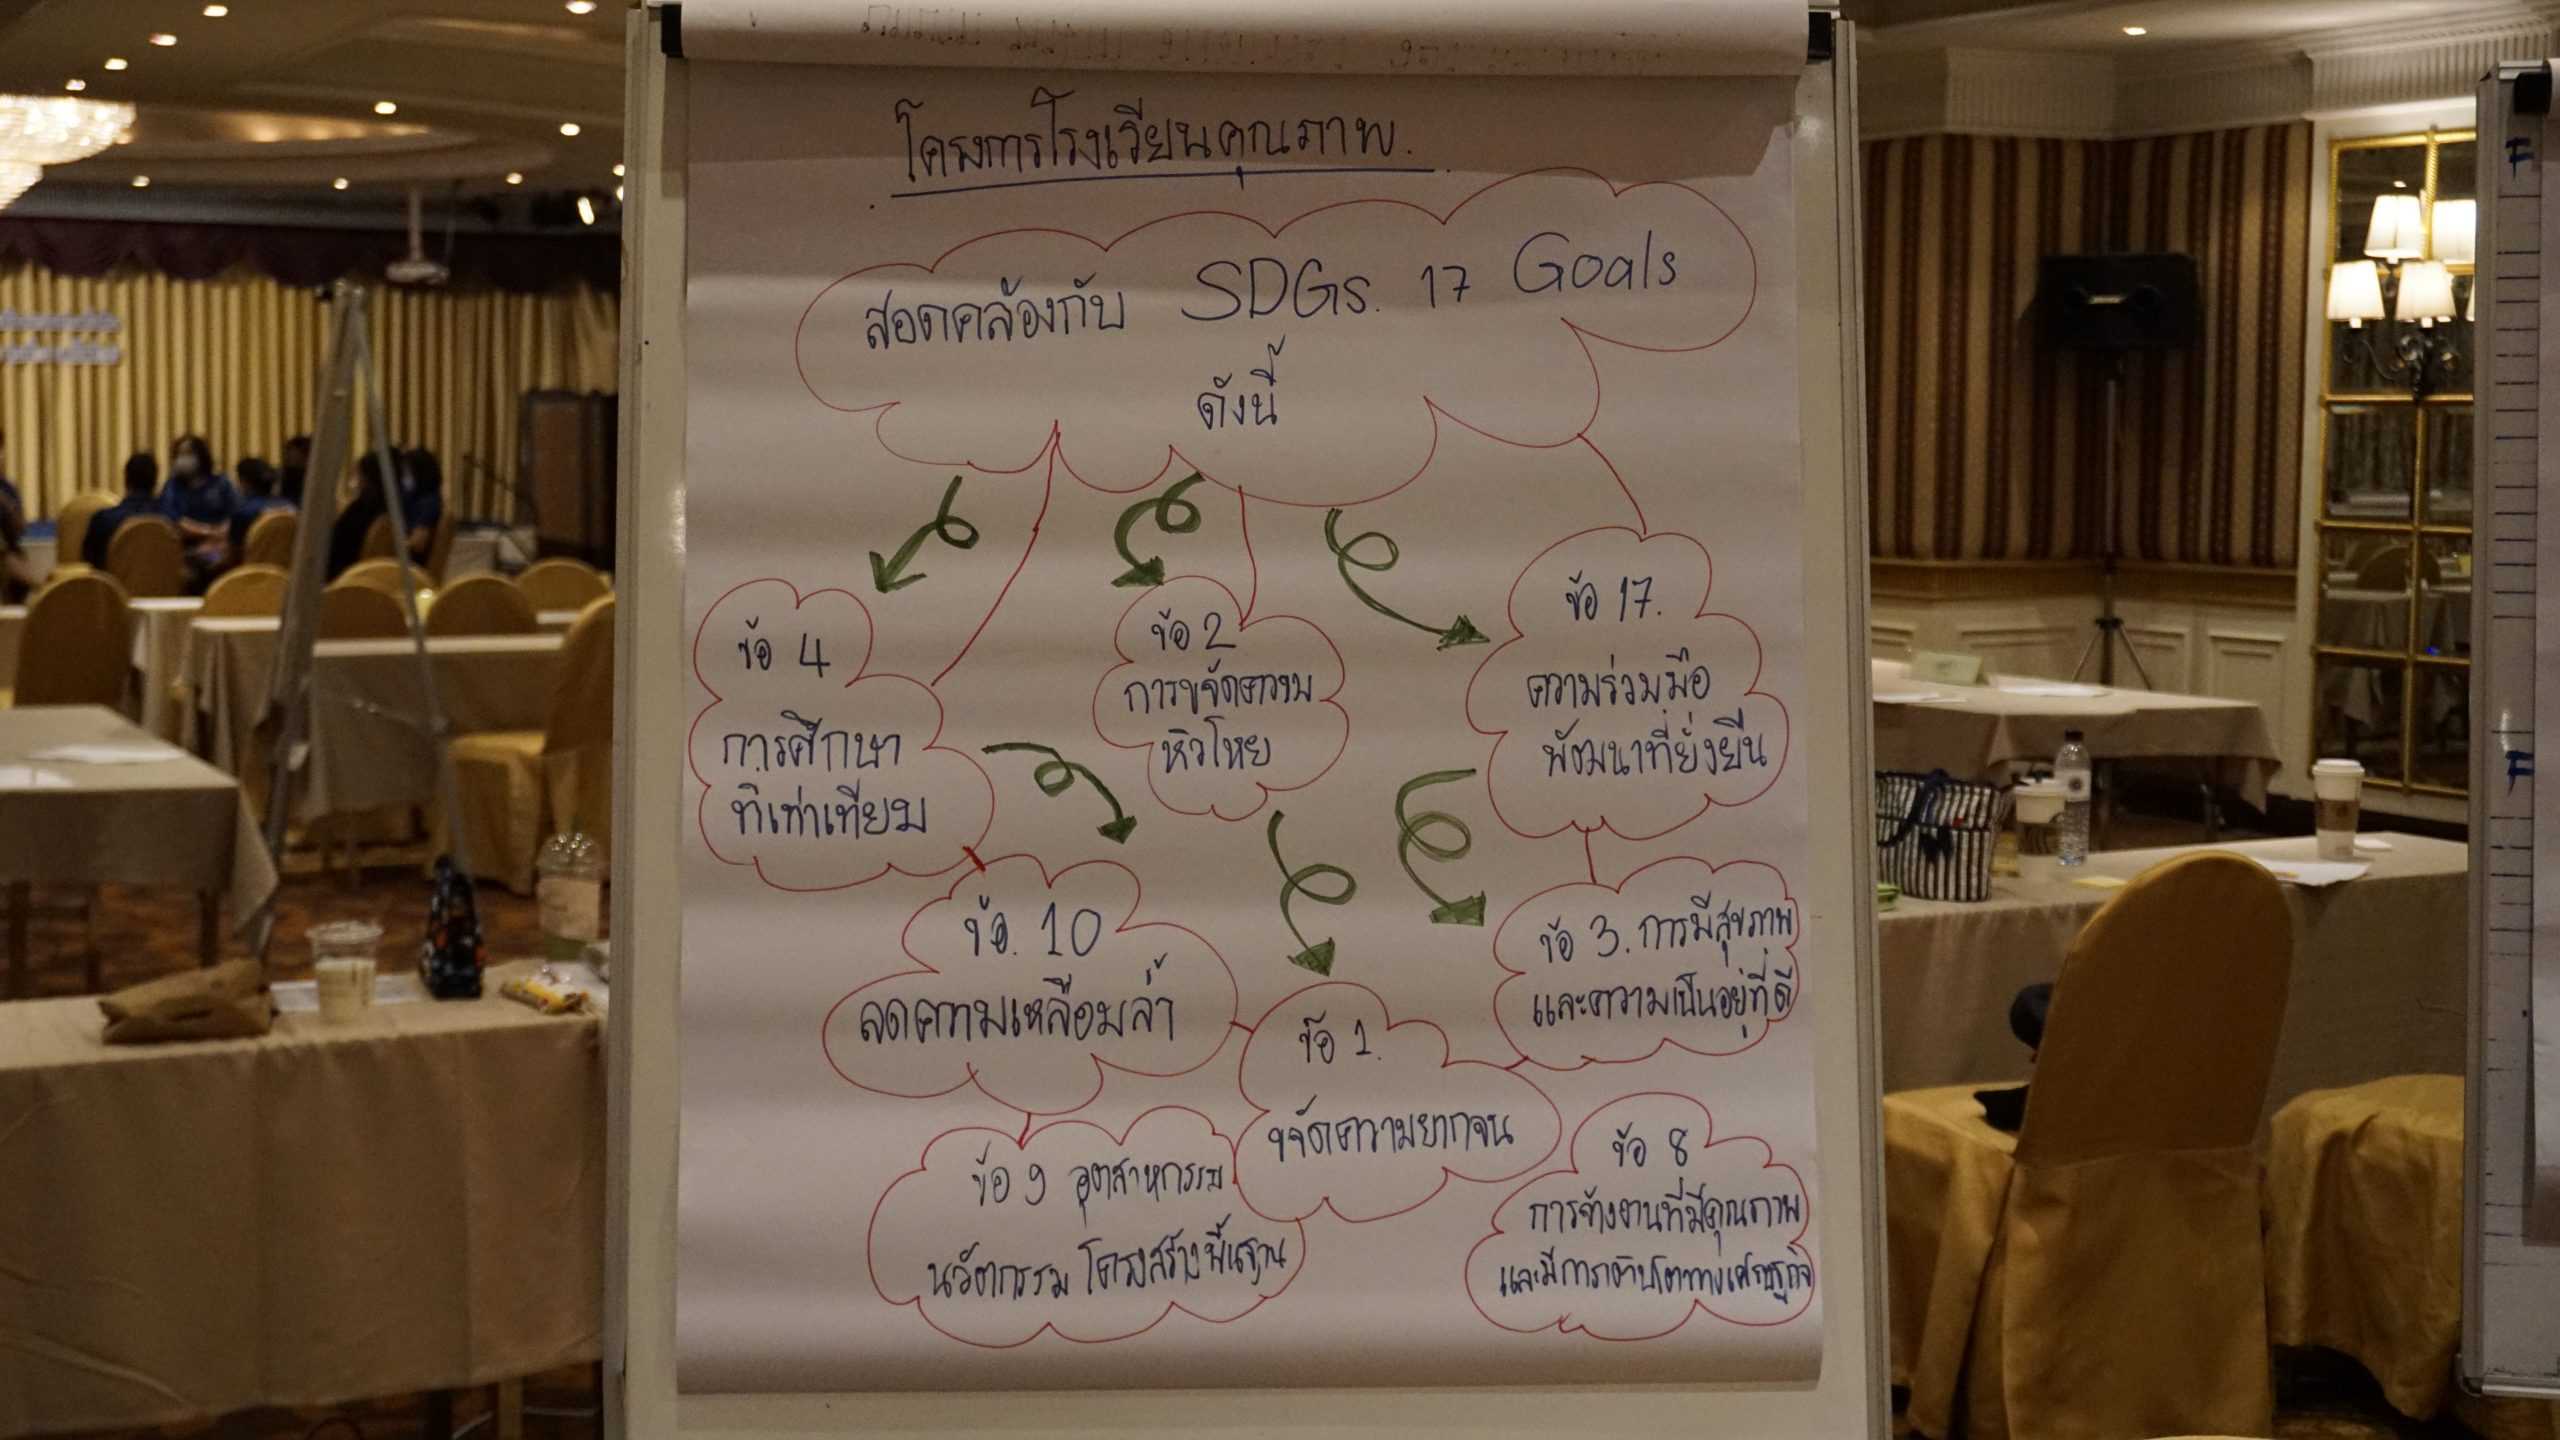 โครงการโรงเรียนคุณภาพ.
สอดคล้องกับ SDGs. 17 Goals
ดังนี้
ข้อ 4
การศึกษา
ที่เท่าเทียม
ข้อ 2
การขจัดความ
หิวโหย
ข้อ 17.
ความร่วมมือ
พัฒนาที่ยั่งยืน
ข้อ. 10
ลดความเหลื่อมล้ำ
ข้อ 3. การมีสุขภาพ
และความเป็นอยู่ที่ดี
ข้อ 1.
ขจัดความยากจน
ข้อ 9 อุตสาหกรรม
นวัตกรรม โครงสร้างพื้นฐาน
ข้อ 8
การจ้างงานที่มีคุณภาพ
และมีการเติบโตทางเศรษฐกิจ
F
F